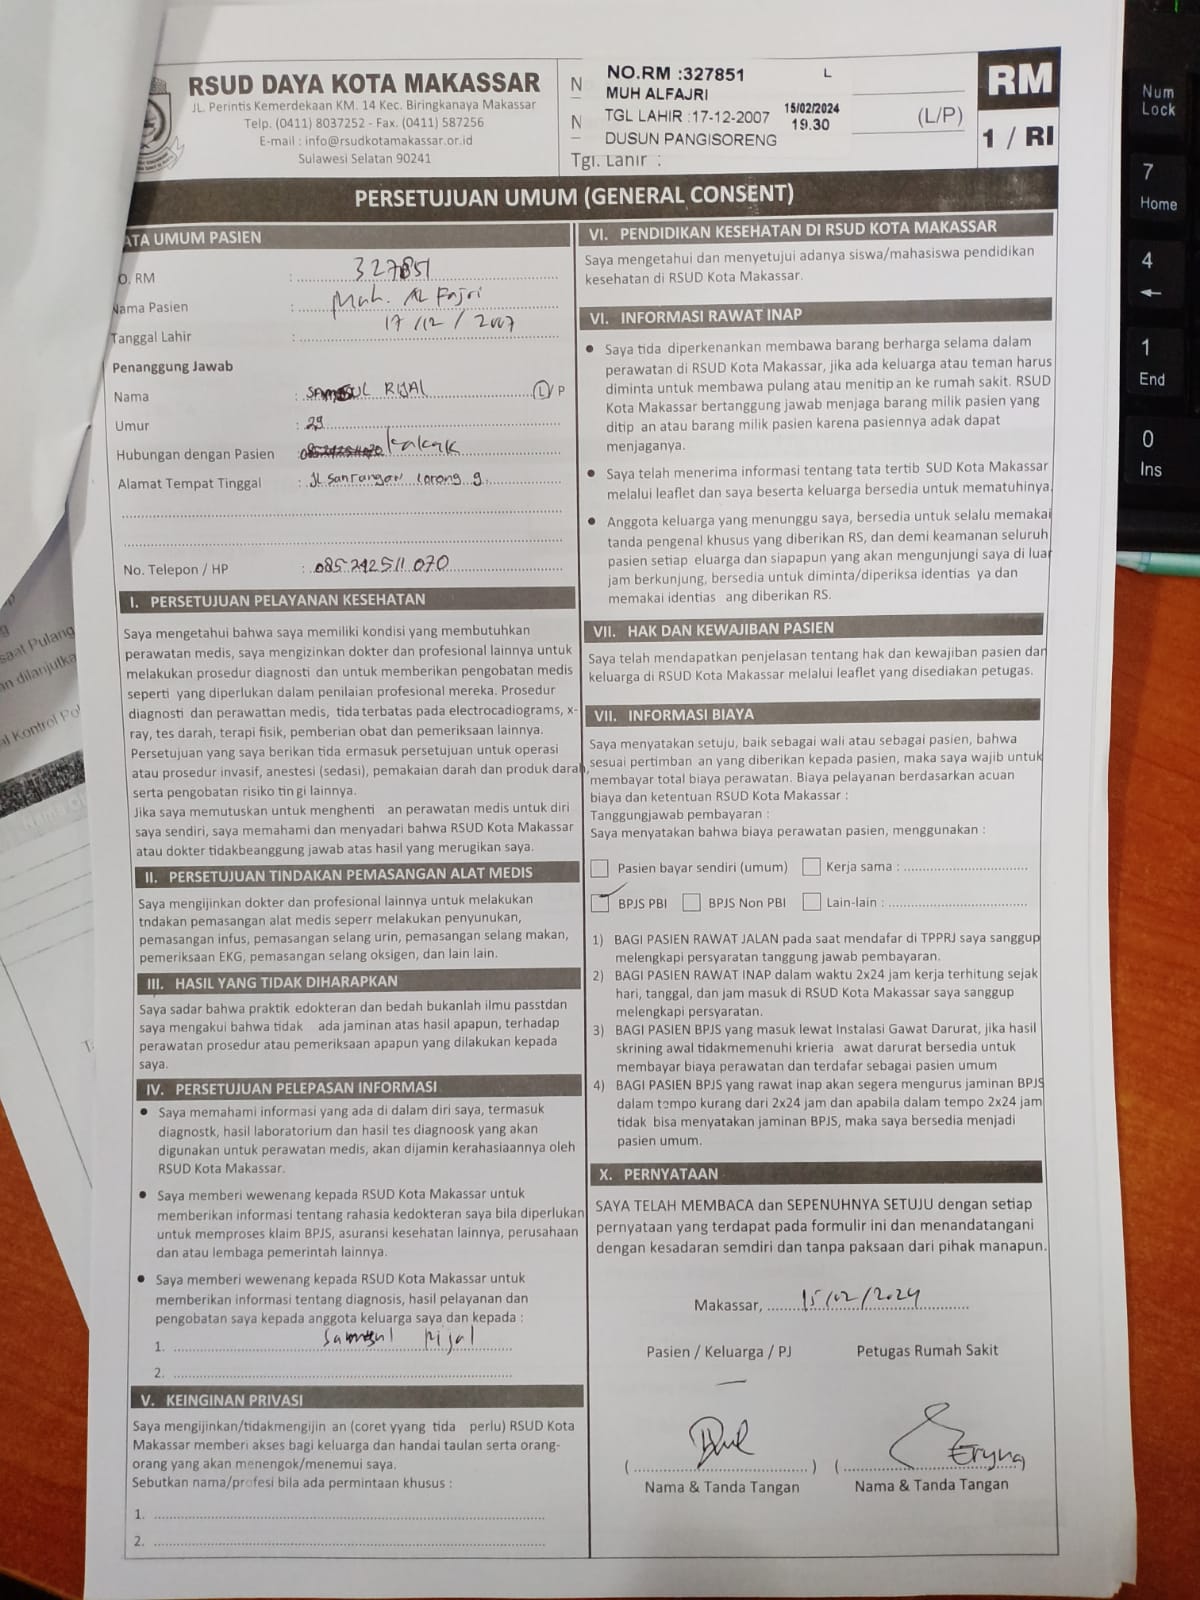 RSUD DAYA KOTA MAKASSAR
JL. Perintis Kemerdekaan KM. 14 Kec. Biringkanaya Makassar
Telp. (0411) 8037252 - Fax. (0411) 587256
E-mail : info@rsudkotamakassar.or.id
Sulawesi Selatan 90241
N
N
NO.RM :327851 L
MUH ALFAJRI
TGL LAHIR :17-12-2007 15/02/2024
19.30
DUSUN PANGISORENG
Tgl. Lahir :
(L/P)
RM
1 / RI
PERSETUJUAN UMUM (GENERAL CONSENT)
ATA UMUM PASIEN
O. RM : 327851
Nama Pasien : Muh. Al Fajri
Tanggal Lahir : 17 / 12 / 2007
Penanggung Jawab
Nama : RIJAL L/ P
Umur : 29
Hubungan dengan Pasien : kakak
Alamat Tempat Tinggal : Jl. lorong 9
No. Telepon / HP : 085 242511 070
I. PERSETUJUAN PELAYANAN KESEHATAN
Saya mengetahui bahwa saya memiliki kondisi yang membutuhkan
perawatan medis, saya mengizinkan dokter dan profesional lainnya untuk
melakukan prosedur diagnosti dan untuk memberikan pengobatan medis
seperti yang diperlukan dalam penilaian profesional mereka. Prosedur
diagnosti dan perawattan medis, tida terbatas pada electrocadiograms, x-
ray, tes darah, terapi fisik, pemberian obat dan pemeriksaan lainnya.
Persetujuan yang saya berikan tida ermasuk persetujuan untuk operasi
atau prosedur invasif, anestesi (sedasi), pemakaian darah dan produk darah,
serta pengobatan risiko tin gi lainnya.
Jika saya memutuskan untuk menghenti an perawatan medis untuk diri
saya sendiri, saya memahami dan menyadari bahwa RSUD Kota Makassar
atau dokter tidakbeanggung jawab atas hasil yang merugikan saya.
II. PERSETUJUAN TINDAKAN PEMASANGAN ALAT MEDIS
Saya mengijinkan dokter dan profesional lainnya untuk melakukan
tndakan pemasangan alat medis seperr melakukan penyunukan,
pemasangan infus, pemasangan selang urin, pemasangan selang makan,
pemeriksaan EKG, pemasangan selang oksigen, dan lain lain.
III. HASIL YANG TIDAK DIHARAPKAN
Saya sadar bahwa praktik edokteran dan bedah bukanlah ilmu passtdan
saya mengakui bahwa tidak ada jaminan atas hasil apapun, terhadap
perawatan prosedur atau pemeriksaan apapun yang dilakukan kepada
saya.
IV. PERSETUJUAN PELEPASAN INFORMASI
• Saya memahami informasi yang ada di dalam diri saya, termasuk
diagnostk, hasil laboratorium dan hasil tes diagnoosk yang akan
digunakan untuk perawatan medis, akan dijamin kerahasiaannya oleh
RSUD Kota Makassar.
• Saya memberi wewenang kepada RSUD Kota Makassar untuk
memberikan informasi tentang rahasia kedokteran saya bila diperlukan
untuk memproses klaim BPJS, asuransi kesehatan lainnya, perusahaan
dan atau lembaga pemerintah lainnya.
• Saya memberi wewenang kepada RSUD Kota Makassar untuk
memberikan informasi tentang diagnosis, hasil pelayanan dan
pengobatan saya kepada anggota keluarga saya dan kepada :
1. Rijal
2.
V. KEINGINAN PRIVASI
Saya mengijinkan/tidakmengijin an (coret yyang tida perlu) RSUD Kota
Makassar memberi akses bagi keluarga dan handai taulan serta orang-
orang yang akan menengok/menemui saya.
Sebutkan nama/profesi bila ada permintaan khusus :
1.
2.
VI. PENDIDIKAN KESEHATAN DI RSUD KOTA MAKASSAR
Saya mengetahui dan menyetujui adanya siswa/mahasiswa pendidikan
kesehatan di RSUD Kota Makassar.
VI. INFORMASI RAWAT INAP
• Saya tida diperkenankan membawa barang berharga selama dalam
perawatan di RSUD Kota Makassar, jika ada keluarga atau teman harus
diminta untuk membawa pulang atau menitip an ke rumah sakit. RSUD
Kota Makassar bertanggung jawab menjaga barang milik pasien yang
ditip an atau barang milik pasien karena pasiennya adak dapat
menjaganya.
• Saya telah menerima informasi tentang tata tertib SUD Kota Makassar
melalui leaflet dan saya beserta keluarga bersedia untuk mematuhinya.
• Anggota keluarga yang menunggu saya, bersedia untuk selalu memakai
tanda pengenal khusus yang diberikan RS, dan demi keamanan seluruh
pasien setiap eluarga dan siapapun yang akan mengunjungi saya di luar
jam berkunjung, bersedia untuk diminta/diperiksa identias ya dan
memakai identias ang diberikan RS.
VII. HAK DAN KEWAJIBAN PASIEN
Saya telah mendapatkan penjelasan tentang hak dan kewajiban pasien dan
keluarga di RSUD Kota Makassar melalui leaflet yang disediakan petugas.
VII. INFORMASI BIAYA
Saya menyatakan setuju, baik sebagai wali atau sebagai pasien, bahwa
sesuai pertimban an yang diberikan kepada pasien, maka saya wajib untuk
membayar total biaya perawatan. Biaya pelayanan berdasarkan acuan
biaya dan ketentuan RSUD Kota Makassar :
Tanggungjawab pembayaran :
Saya menyatakan bahwa biaya perawatan pasien, menggunakan :
Pasien bayar sendiri (umum) Kerja sama :
BPJS PBI BPJS Non PBI Lain-lain :
1) BAGI PASIEN RAWAT JALAN pada saat mendafar di TPPRJ saya sanggup
melengkapi persyaratan tanggung jawab pembayaran.
2) BAGI PASIEN RAWAT INAP dalam waktu 2x24 jam kerja terhitung sejak
hari, tanggal, dan jam masuk di RSUD Kota Makassar saya sanggup
melengkapi persyaratan.
3) BAGI PASIEN BPJS yang masuk lewat Instalasi Gawat Darurat, jika hasil
skrining awal tidakmemenuhi krieria awat darurat bersedia untuk
membayar biaya perawatan dan terdafar sebagai pasien umum
4) BAGI PASIEN BPJS yang rawat inap akan segera mengurus jaminan BPJS
dalam tempo kurang dari 2x24 jam dan apabila dalam tempo 2x24 jam
tidak bisa menyatakan jaminan BPJS, maka saya bersedia menjadi
pasien umum.
X. PERNYATAAN
SAYA TELAH MEMBACA dan SEPENUHNYA SETUJU dengan setiap
pernyataan yang terdapat pada formulir ini dan menandatangani
dengan kesadaran semdiri dan tanpa paksaan dari pihak manapun.
Makassar, 15/02/2024
Pasien / Keluarga / PJ Petugas Rumah Sakit
Eryna
Nama & Tanda Tangan Nama & Tanda Tangan
saat Pulang
an dilanjutka
al Kontrol Pol
Num
Lock
7
Home
4
←
1
End
0
Ins